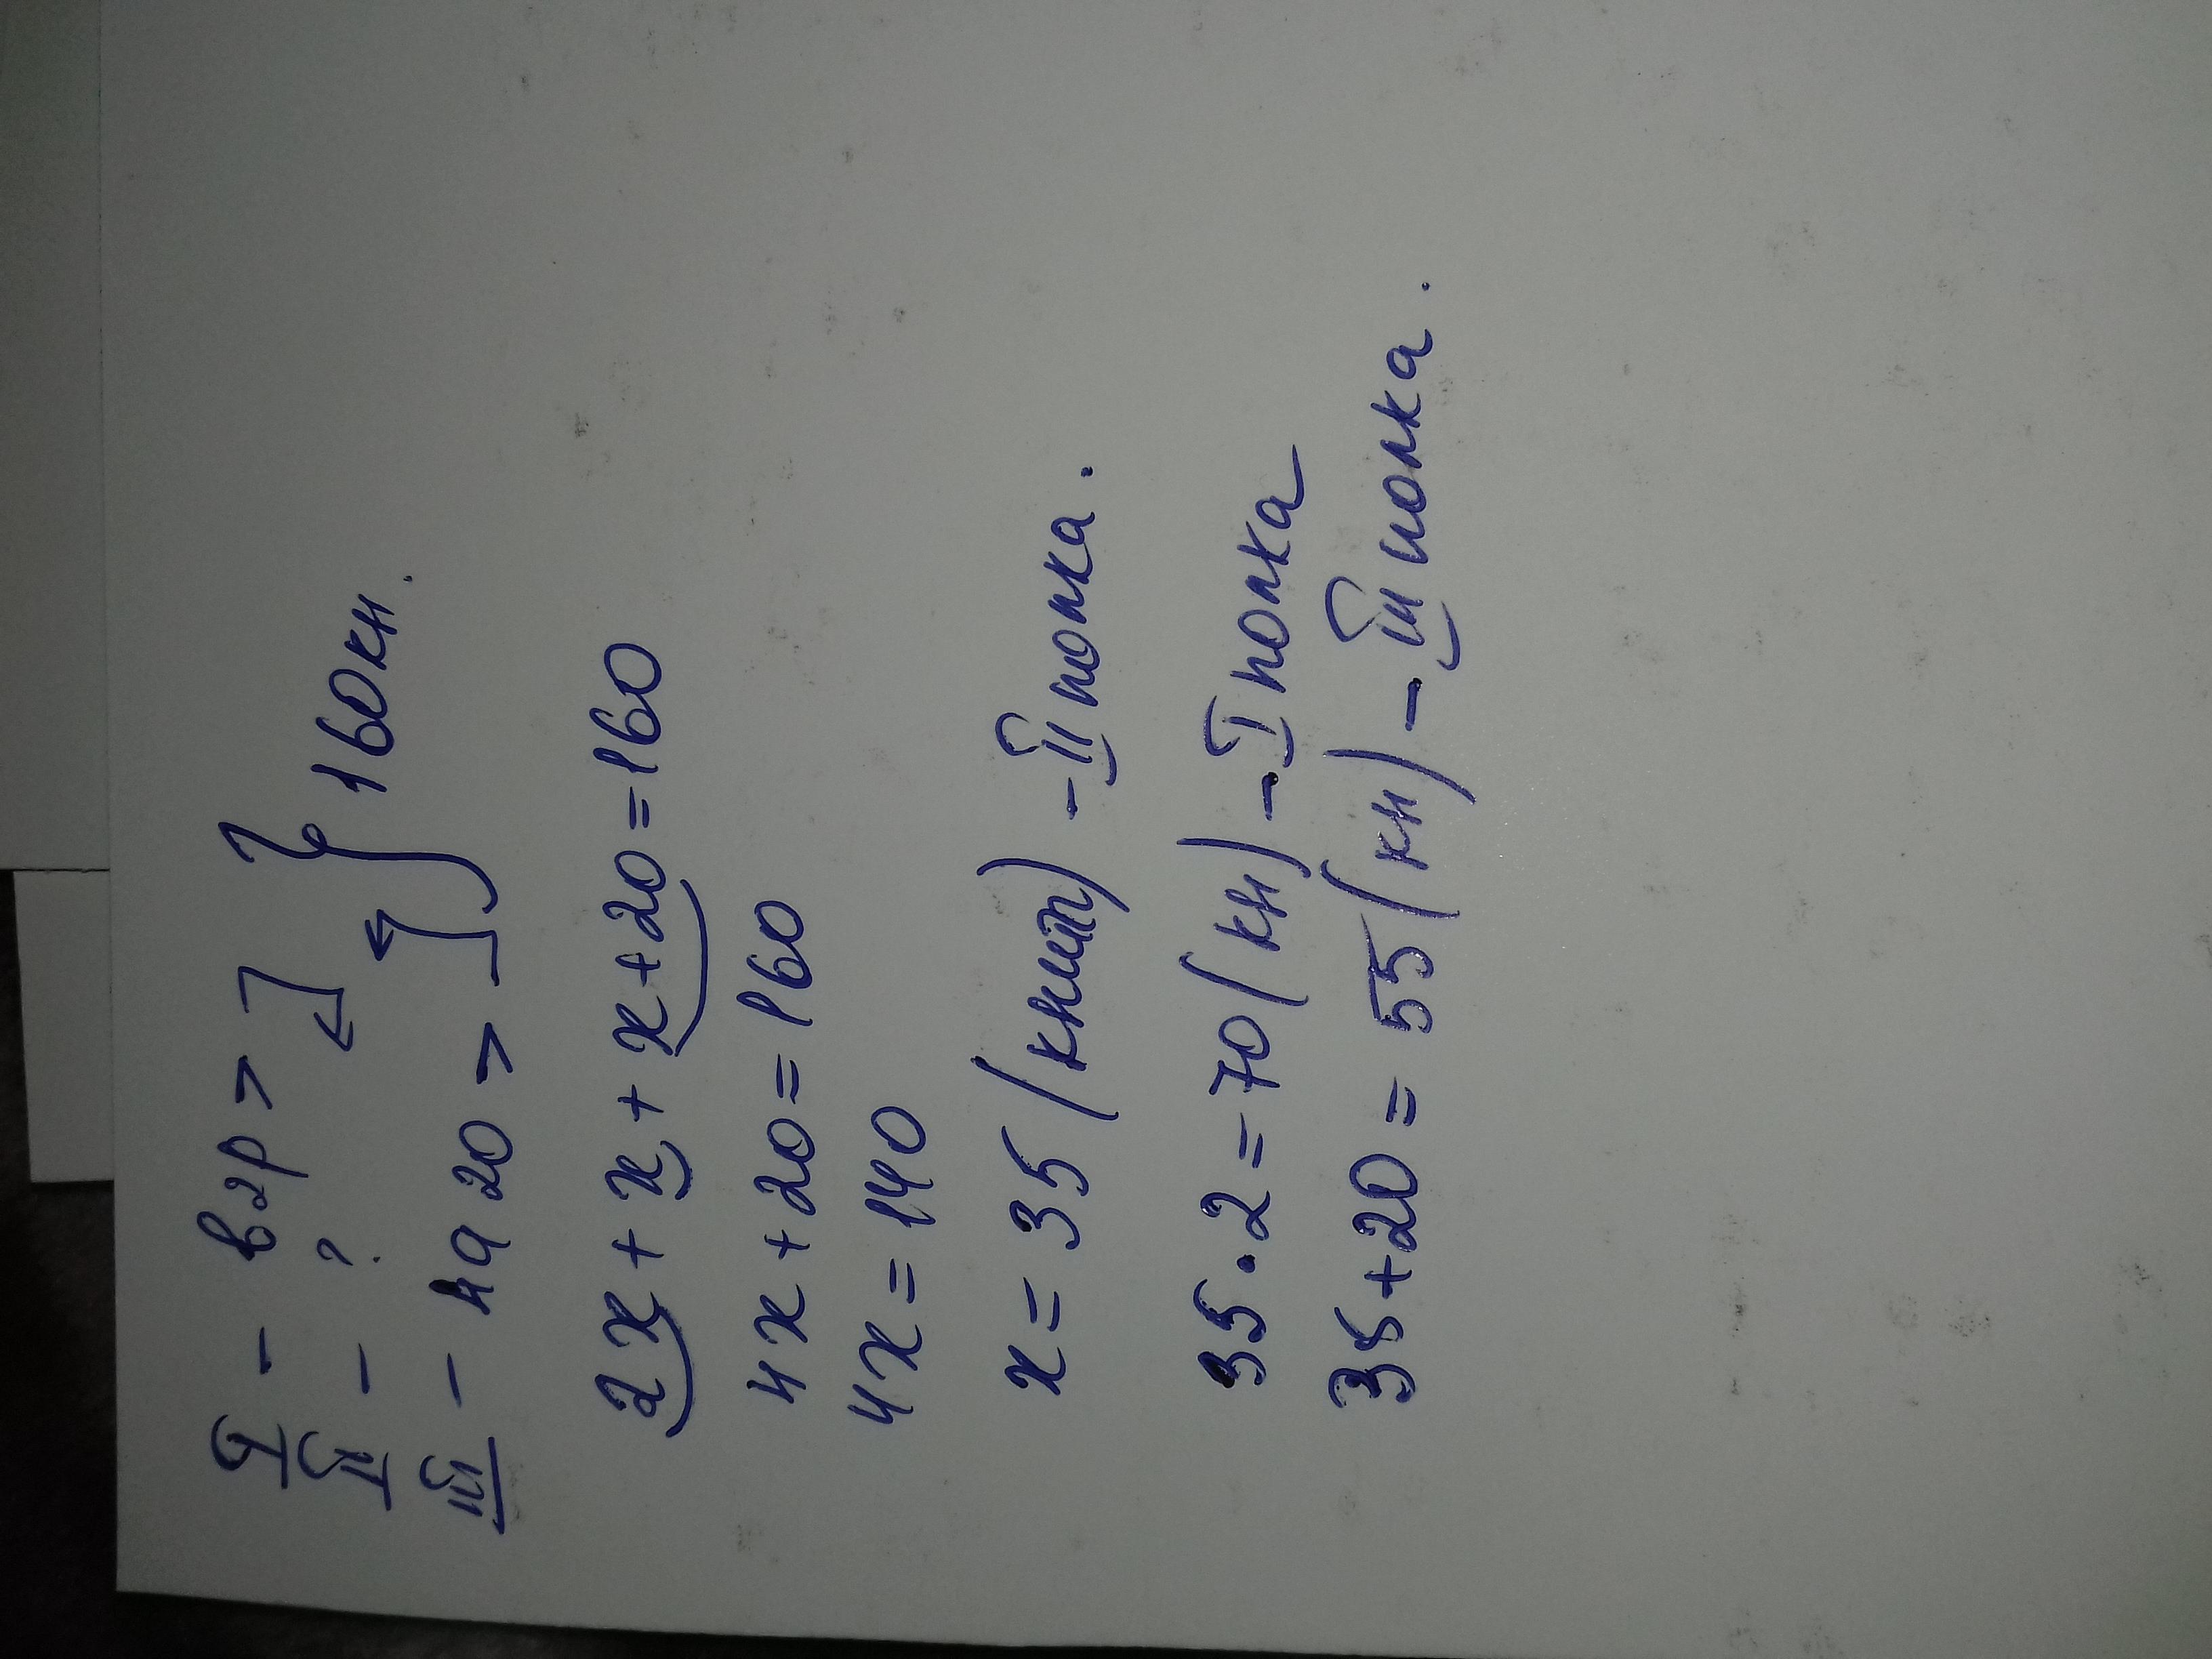 I - в 2р >
II - ?
III - на 20 >
160 кн.
2x + x + x + 20 = 160
4x + 20 = 160
4x = 140
x = 35 (книг) - II полка.
35 · 2 = 70 (кн) - I полка
35 + 20 = 55 (кн) - III полка.